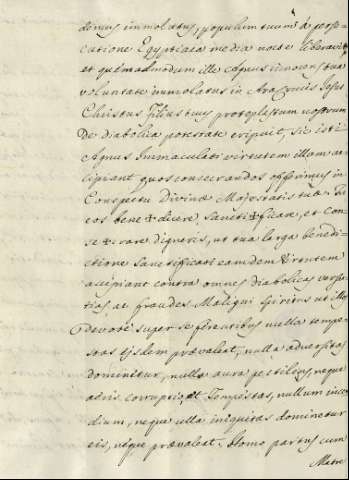 dencus immolatus, populum tuum à perse-
cutione Egyptiaca media nocte liberavit,
et quémadmodum ille Agnus innocens tua
voluntate immolatus in Ara Crucis Jesus
Christus Filius tuus protoplastum nostrum
De diabolica potestate eripuit, sic isti
Agnus Immaculati virtutem illam ac-
cipiant quos consecrandos offerimus in
Conspectu Divinæ Majestatis tuæ. Tu
eos bene✠dicere sancti✠ficare, et Con-
se✠crare digneris, ut tua larga benedi-
ctione sanctificati eamdem virtutem
accipiant contra omnes diabolicas versu-
tias, ac fraudes Maligni Spiritus ut illos
devotè super se ferentibus nulla tempe-
stas ejsdem prævaleat, nulla adversitas
dominetur, nulla aura pestilens, neque
aëris corruptio, et Tempestas, nullum ince-
dium, neque ulla iniquitas dominetur
eis, neque prævaleat. Homo partus cum
Matre